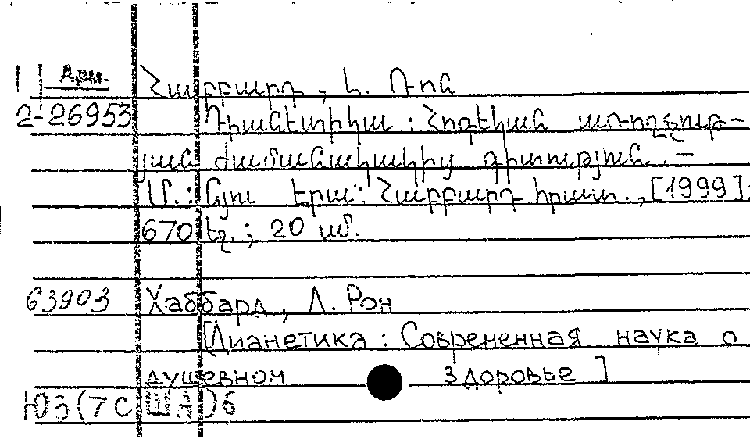 Арм.
2-26953 Հաբբարդ, Լ. Ռոն
Դիանետիկա: Հոգեկան առողջութ-
յան ժամանակակից գիտություն. –
Մ.: Նյու Էրա: Հաբբարդ հրատ., [1999].
670 էջ.; 20 սմ.
63903 Хаббард, Л. Рон
[Дианетика: Современная наука о
душевном здоровье]
Ю3(7США)6